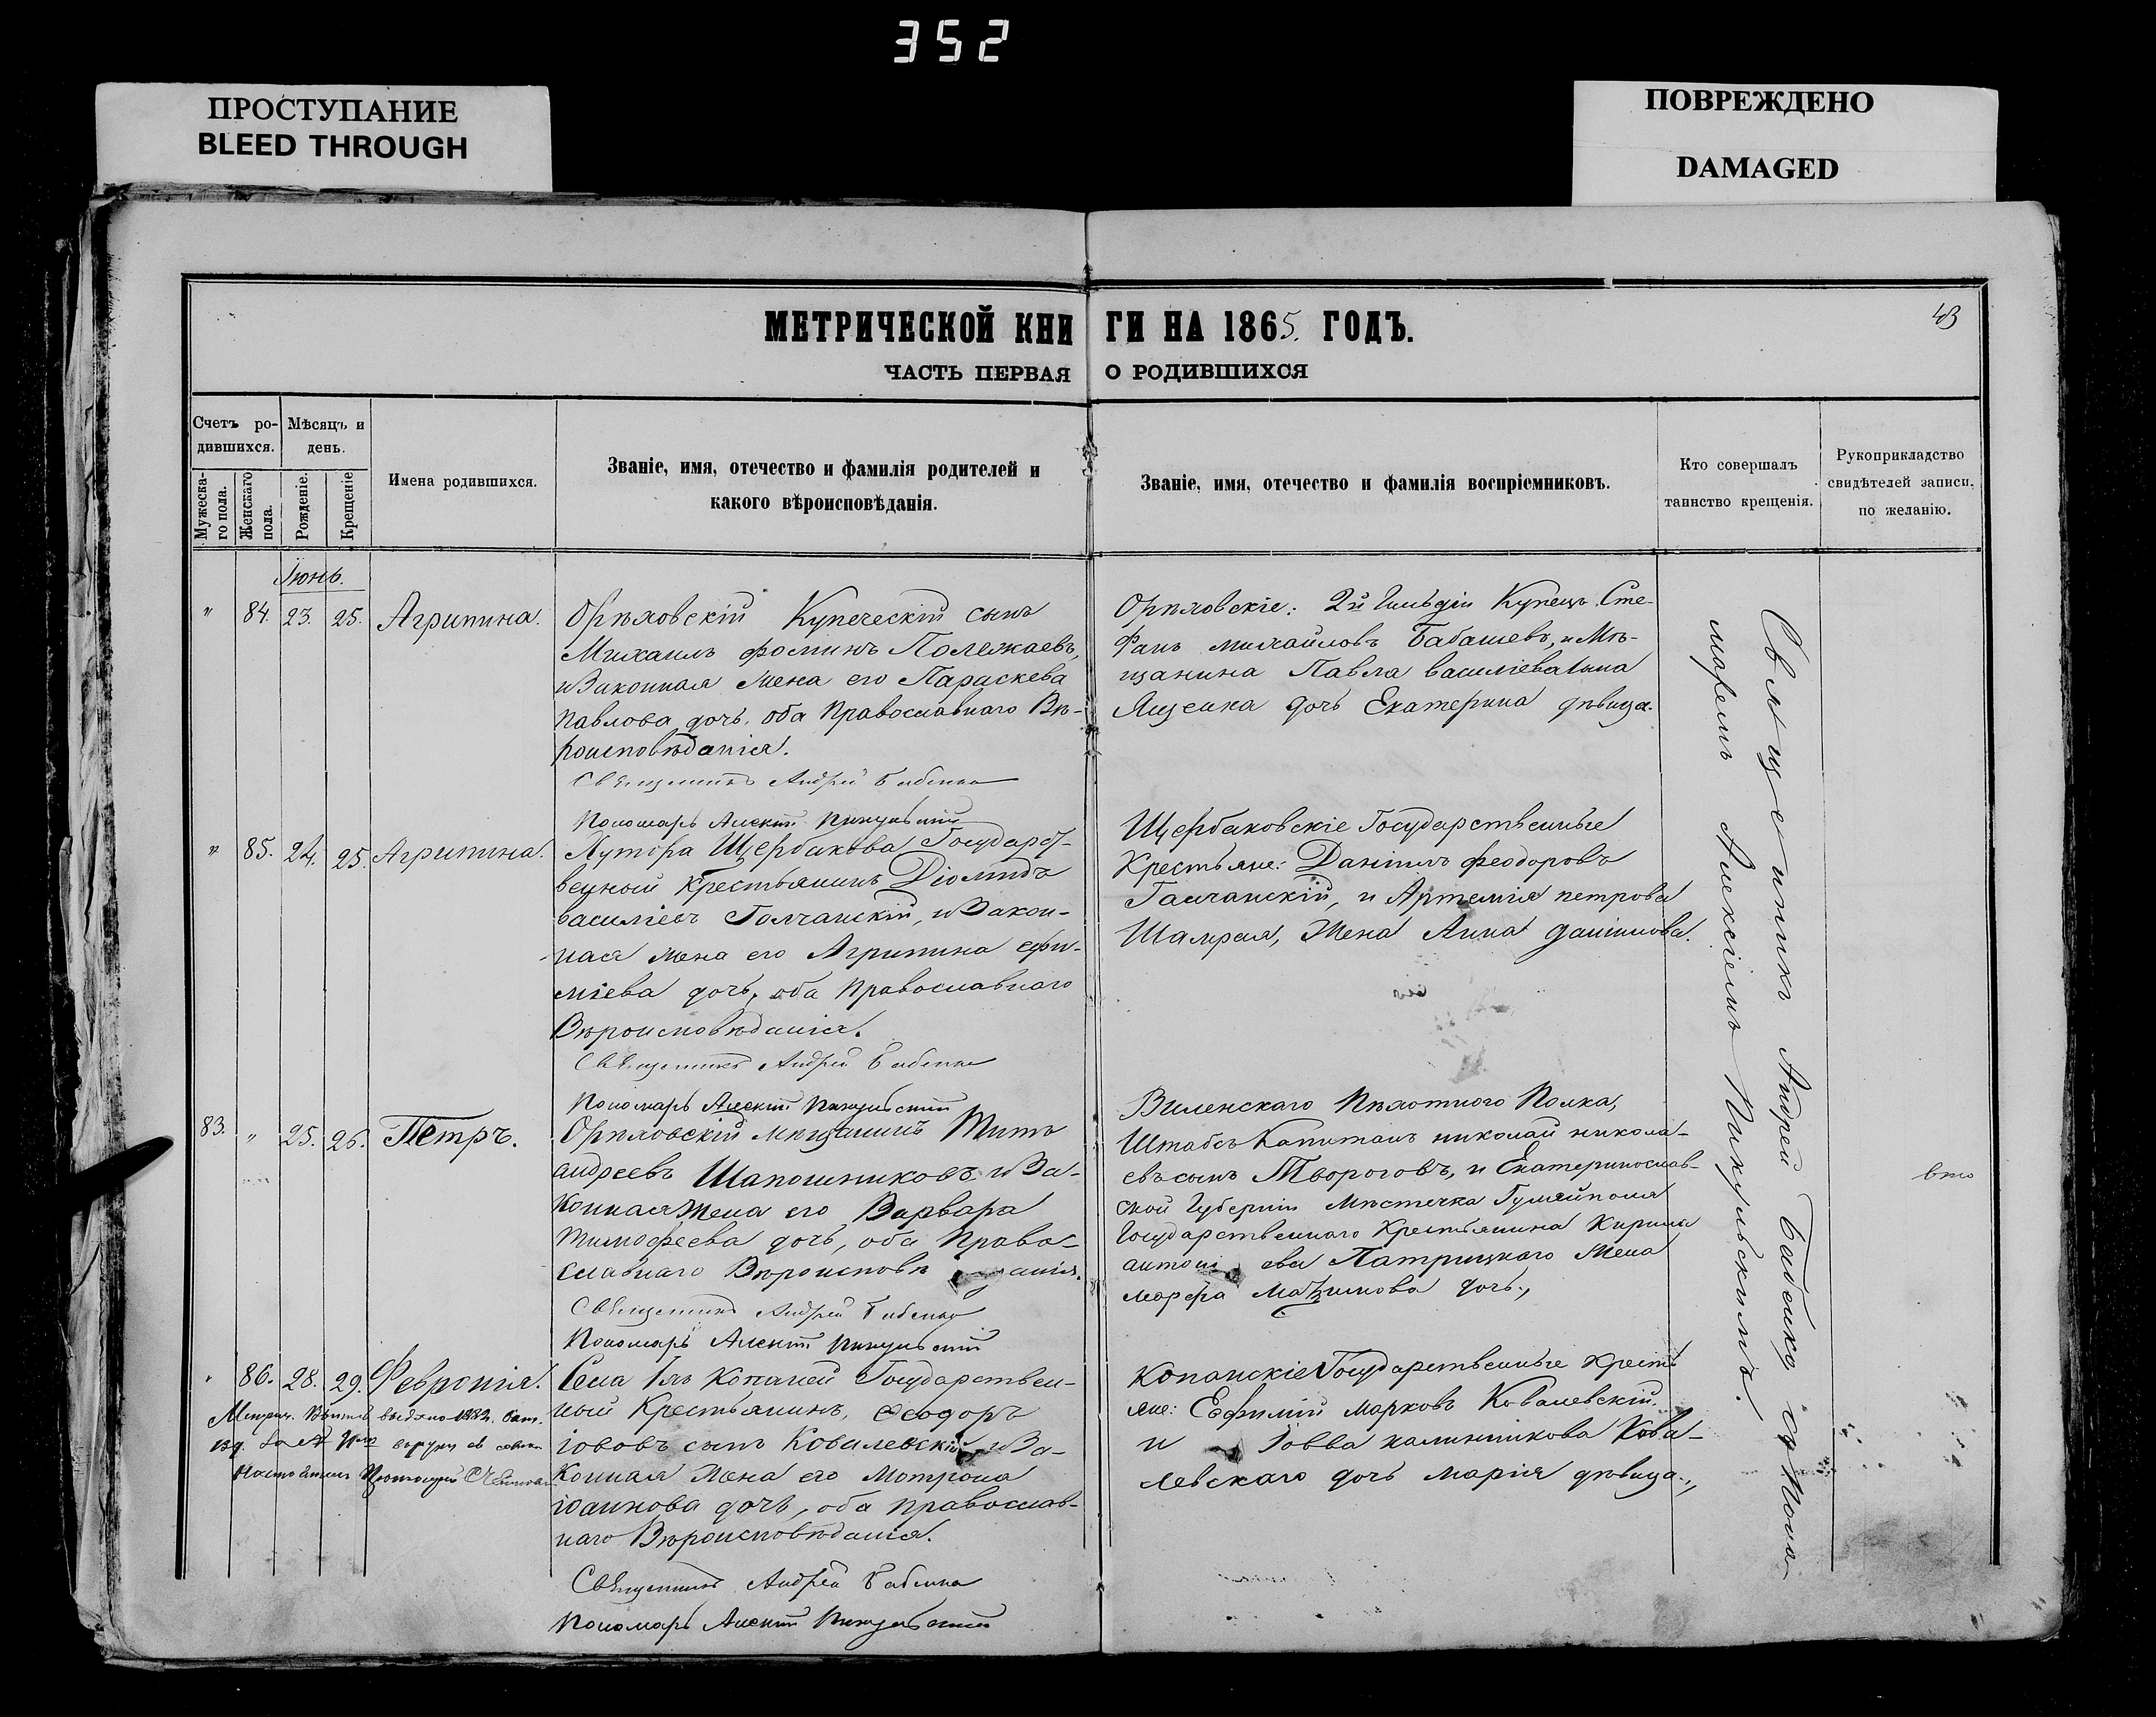 352
ПРОСТУПАНИЕ
BLEED THROUGH
ПОВРЕЖДЕНО
DAMAGED
43
МЕТРИЧЕСКОЙ КНИГИ НА 1865. ГОДЪ.
ЧАСТЬ ПЕРВАЯ О РОДИВШИХСЯ
Счетъ ро-
дившихся.
Мужеска-
го пола.
Женскаго
пола.
Мѣсяцъ и
день.
Рожденіе.
Крещеніе
Имена родившихся.
Званіе, имя, отечество и фамилія родителей и
какого вѣроисповѣданія.
Званіе, имя, отечество и фамилія воспріемниковъ.
Кто совершалъ
таинство крещенія.
Рукоприкладство
свидѣтелей записи,
по желанію.
Іюнь.
" 84. 23. 25. Агрипина.
Орѣховскій Купеческій сынъ
Михаилъ фоминъ Полежаевъ,
и Законная жена его Параскева
павлова дочь, оба Православнаго Вѣ-
роисповѣданія.
Священникъ Андрей Бабенко
Пономарь Алексій Пикульскій
Орѣховскіе: 2й Гильдіи Купецъ Сте-
фанъ михайловъ Бабашевъ, и Мѣ-
щанина Павла василіева сына
Ященка дочь Екатерина дѣвица.
" 85. 24. 25. Агрипина.
Хутора Щербакова Государст-
венный Крестьянинъ Діомидъ
василіевъ Галчанскій, и Закон-
ная жена его Агрипина ефи-
міева дочь, оба Православнаго
Вѣроисповѣданія.
Священникъ Андрей Бабенко
Пономарь Алексій Пикульскій
Щербаковскіе Государственные
Крестьяне: Даніилъ феодоровъ
Галчанскій, и Артемія петрова
Шамрая, Жена Анна даніилова.
83. " 25. 26. Петръ.
Орѣховскій мѣщанинъ Титъ
андреевъ Шапошниковъ и За-
конная жена его Варвара
тимофеева дочь, оба Право-
славнаго Вѣроисповѣданія.
Священникъ Андрей Бабенко
Пономарь Алексій Пикульскій
Виленскаго Пѣхотнаго Полка,
Штабсъ Капитанъ николай никола-
евъ сынъ Твороговъ, и Екатеринослав-
ской Губерніи Мѣстечка Гуляйполя
Государственнаго Крестьянина Кирила
антоніева Патрицкаго Жена
марфа Мазимова дочь.,
" 86. 28. 29. Февронія.
Села Копаней Государствен-
ный Крестьянинъ, Ѳеодоръ
іововъ сынъ Ковалевскій и За-
конная жена его Мотрона
іоаннова дочь, оба православ-
наго Вѣроисповѣданія.
Священникъ Андрей Бабенко
Пономарь Алексій Пикульскій
Копанскіе Государственные крестья
яне: Евфимій марковъ Ковалевскій
и Іовва калинникова Кова-
левскаго дочь марія дѣвица.,
Метрич. выдано 1882.
Священникъ Андрей Бабенко съ Поно-
маремъ Алексіемъ Пикульскимъ.